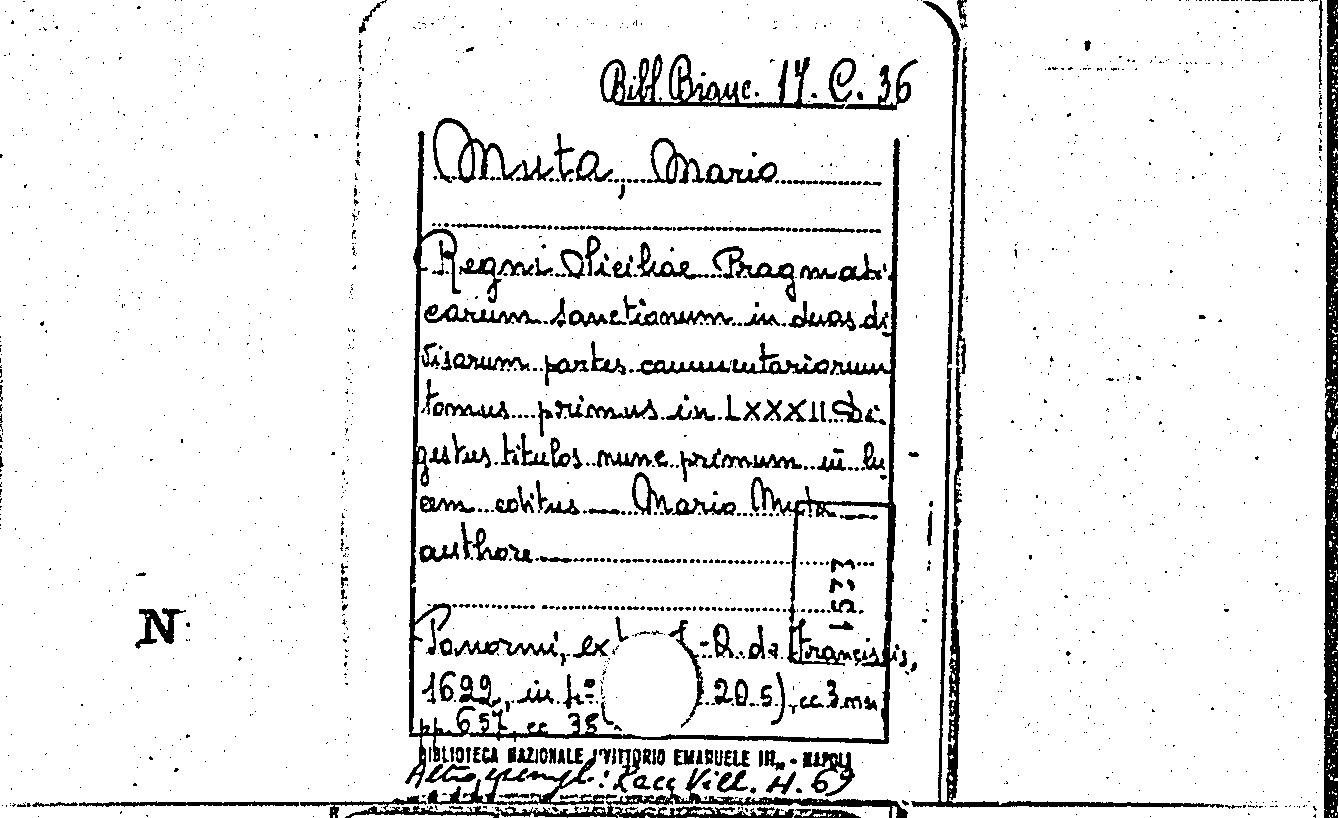 Bibl. Branc. 17. C. 36
Muta, Mario
Regni Siciliae Pragmati-
carum sanctionum in duas di
visarum partes commentariorum
tomus primus in LXXXII Di-
gestus titulos nunc primum in lu
cem editus — Mario Muta —
authore —
1573
Panormi, ex Q. de Franciscis,
1622, in f.º 20.5), cc. 3 nn.
pp. 657, cc 38
N
BIBLIOTECA NAZIONALE "VITTORIO EMANUELE III" - NAPOLI
Altro esempl.: Racc. Vill. H. 69